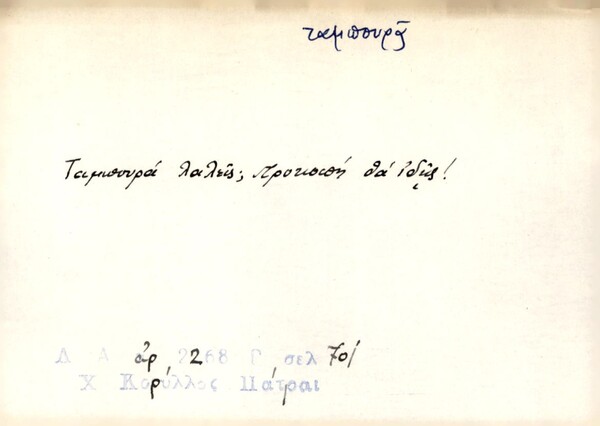 ταμπουρᾶ
Ταμπουρά λαλεῖς; προκοπή θά ἰδῇς!
Λ Α ἀρ 2268 Γ σελ 701
Χ Κορύλλος Πάτραι